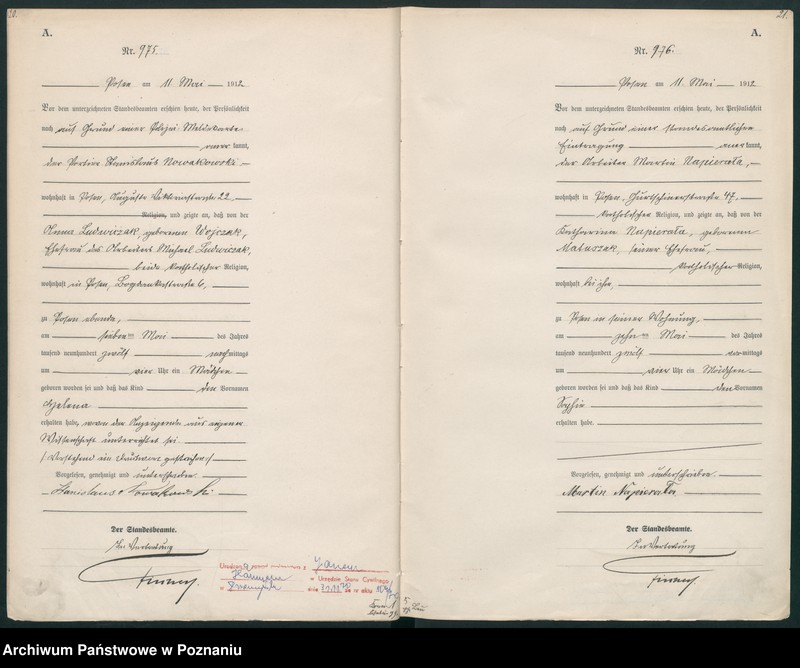 20.
A.
Nr. 975.
Posen am 11. Mai 1912
Vor dem unterzeichneten Standesbeamten erschien heute, der Persönlichkeit
nach auf Grund einer Polizei-Meldekarte
anerkannt,
der Portier Stanislaus Nowakowski
wohnhaft in Posen, Auguste Viktoriastraße 22
Religion, und zeigte an, daß von der
Anna Ludwiczak, geborenen Wojczak,
Ehefrau des Arbeiters Michael Ludwiczak,
beide katholischer Religion,
wohnhaft in Posen, Bogdankastraße 6,
zu Posen ebenda,
am sieben ten Mai des Jahres
tausend neunhundert zwölf nachmittags
um vier Uhr ein Mädchen
geboren worden sei und daß das Kind den Vornamen
Helena
erhalten habe, wovon der Anzeigende aus eigener
Wissenschaft unterrichtet sei
/Vorstehend ein Druckwort gestrichen/
Vorgelesen, genehmigt und unterschrieben
Stanislaus Nowakowski
Der Standesbeamte.
In Vertretung
w Urzędzie Stanu Cywilnego
dnia
nr aktu
21.
A.
Nr. 976.
Posen am 11. Mai 1912
Vor dem unterzeichneten Standesbeamten erschien heute, der Persönlichkeit
nach auf Grund einer standesamtlichen
Eintragung anerkannt,
der Arbeiter Martin Napierała,
wohnhaft in Posen, Gurtschinerstraße 47,
katholischer Religion, und zeigte an, daß von der
Katharina Napierała, geborenen
Matuszak, seiner Ehefrau,
katholischer Religion,
wohnhaft bei ihm,
zu Posen in seiner Wohnung,
am zehn ten Mai des Jahres
tausend neunhundert zwölf vormittags
um vier Uhr ein Mädchen
geboren worden sei und daß das Kind den Vornamen
Sophie
erhalten habe.
Vorgelesen, genehmigt und unterschrieben.
Martin Napierała
Der Standesbeamte.
In Vertretung
Archiwum Państwowe w Poznaniu